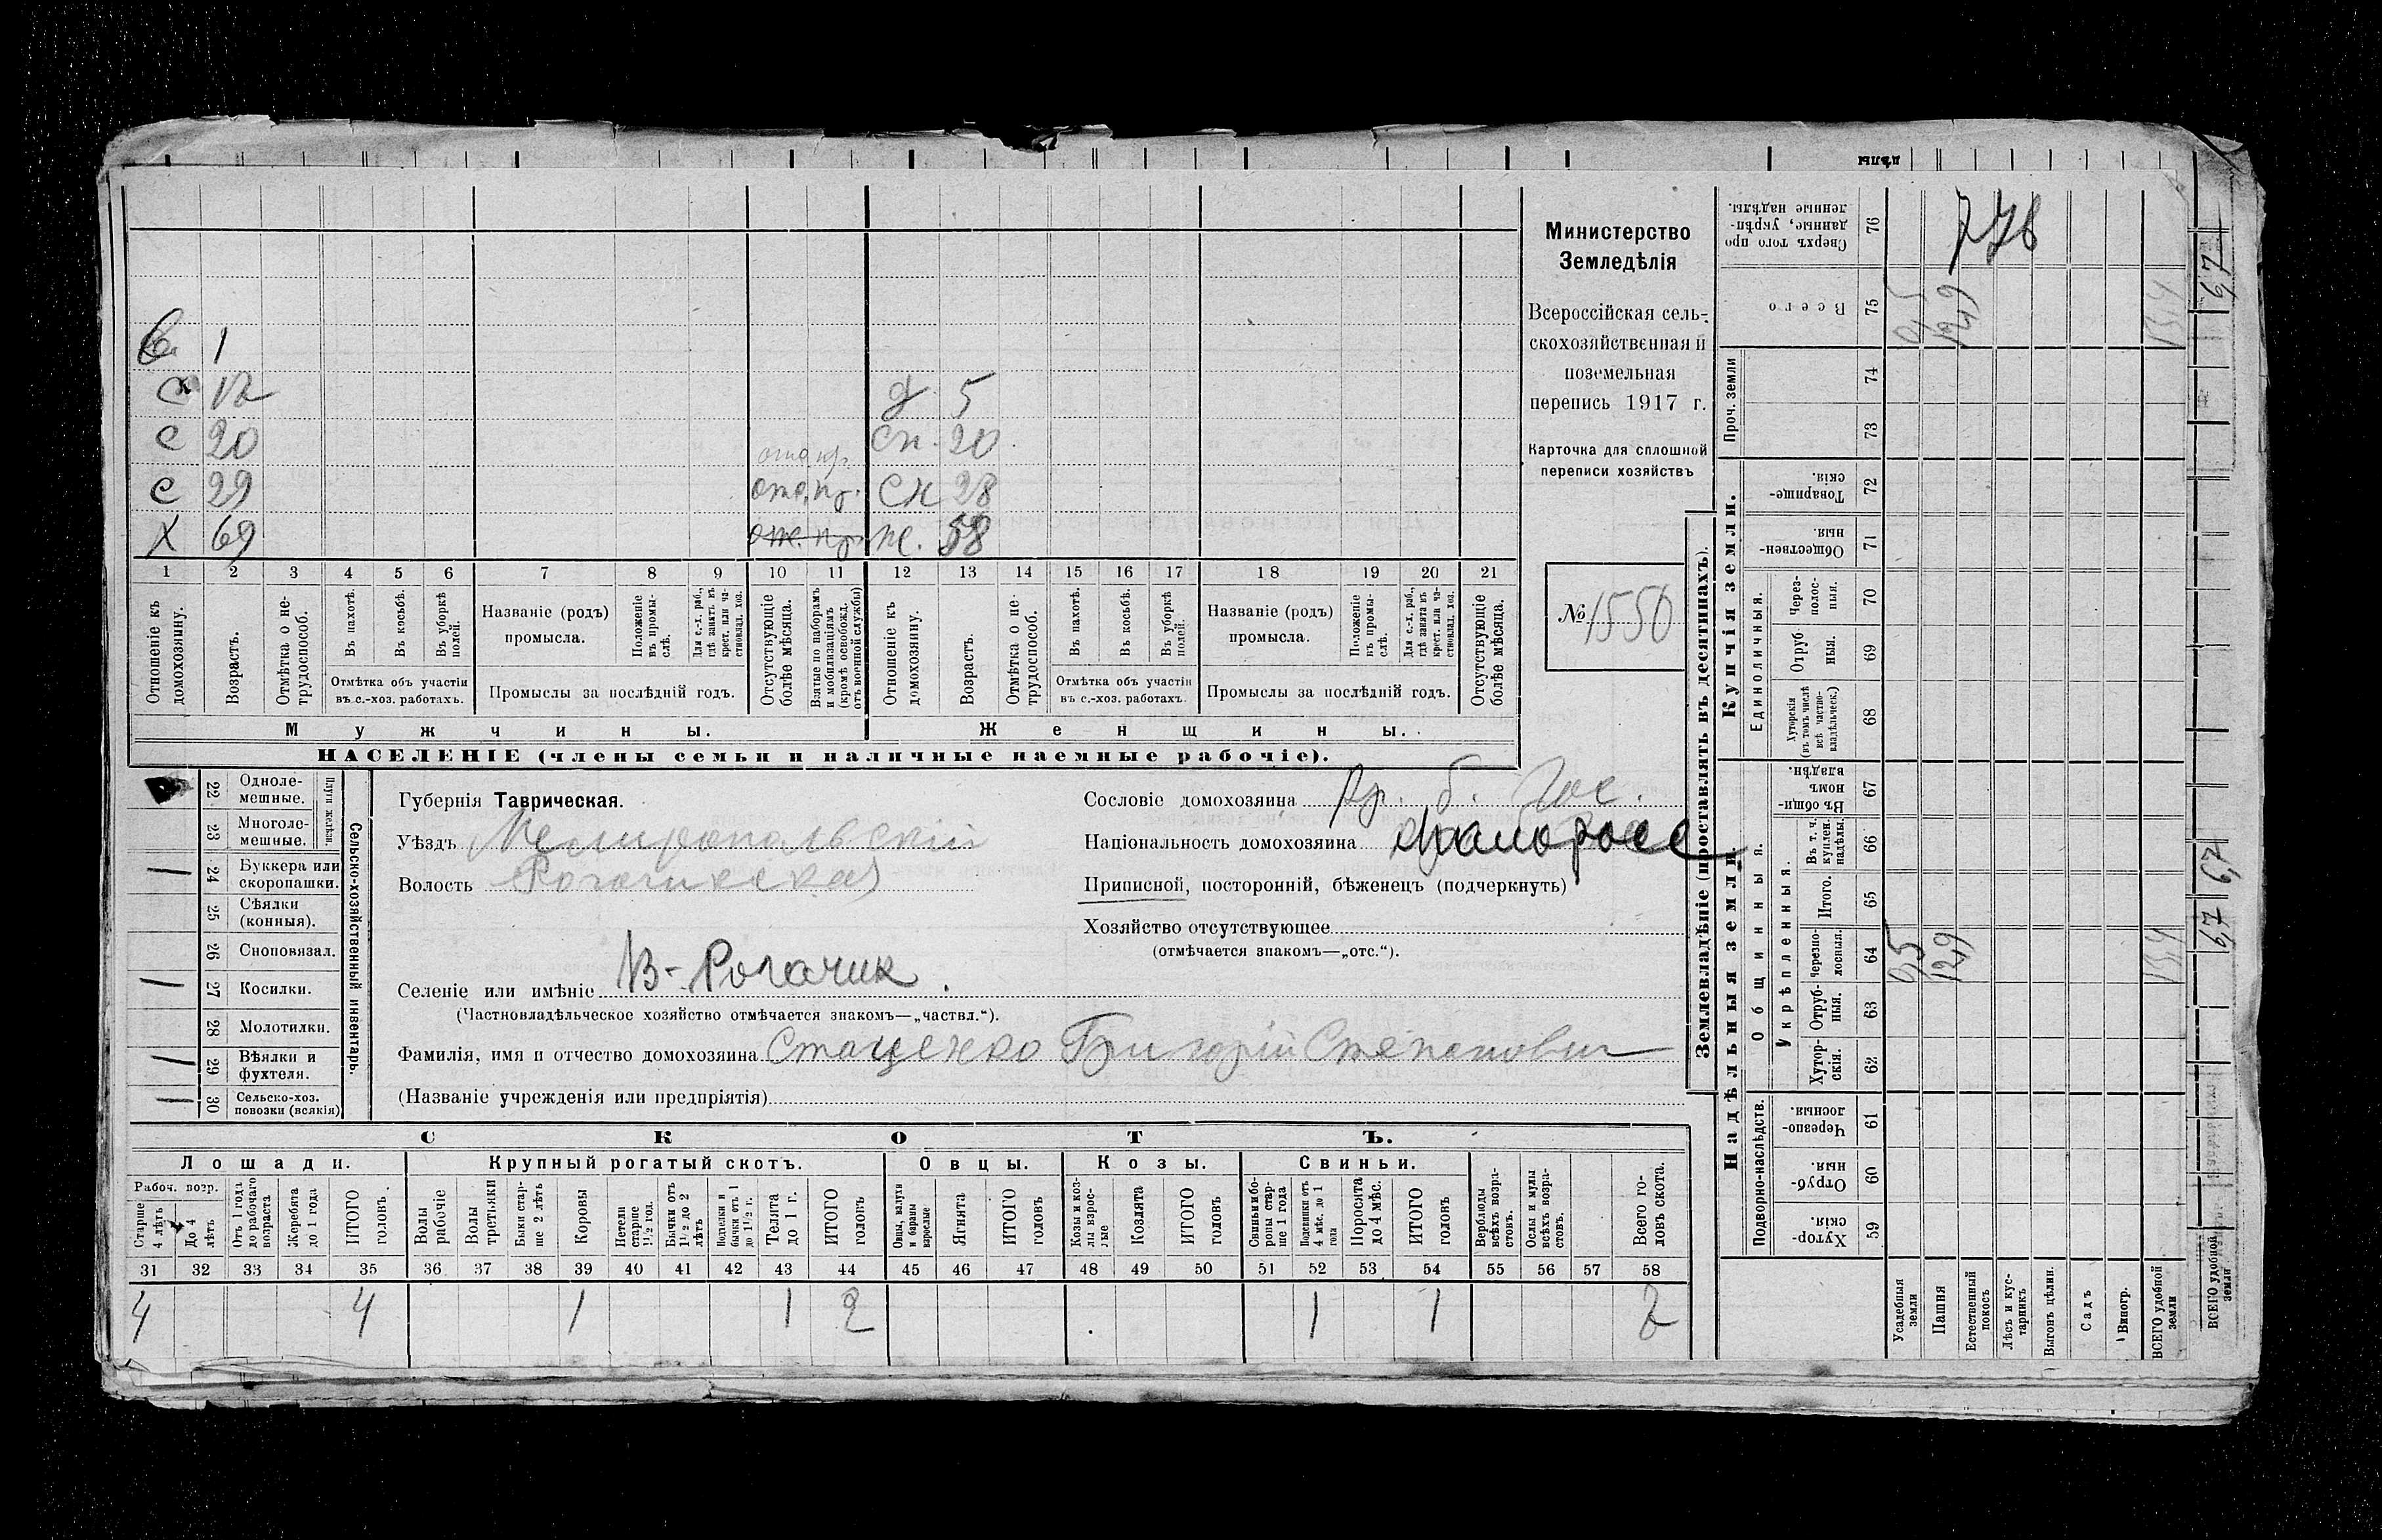 Министерство
Земледѣлія
Всероссійская сель-
скохозяйственная и
поземельная
перепись 1917 г.
Карточка для сплошной
переписи хозяйствъ
№ 1550
1
12 д. 5
с 20 сн. 20
с 29 отс. сн 28
Х 69 ж. 58
1 2 3 4 5 6 7 8 9 10 11 12 13 14 15 16 17 18 19 20 21
Отношеніе къ домохозяину.
Возрастъ.
Отмѣтка о не-трудоспособ.
Въ пахотѣ.
Въ косьбѣ.
Въ уборкѣ полей.
Отмѣтка объ участіи
въ с.-хоз. работахъ.
Названіе (родъ)
промысла.
Положеніе въ промы-слѣ.
Для с.-х. раб., гдѣ занятъ въ крест. или ча-стновлад. хоз.
Промыслы за послѣдній годъ.
Отсутствующіе болѣе мѣсяца.
Взятые по наборамъ и мобилизаціямъ (кромѣ освобожд. отъ военной службы)
Отношеніе къ домохозяину.
Возрастъ.
Отмѣтка о не-трудоспособ.
Въ пахотѣ.
Въ косьбѣ.
Въ уборкѣ полей.
Отмѣтка объ участіи
въ с.-хоз. работахъ.
Названіе (родъ)
промысла.
Положеніе въ промы-слѣ.
Для с.-х. раб., гдѣ занята въ крест. или ча-стновлад. хоз.
Промыслы за послѣдній годъ.
Отсутствующіе болѣе мѣсяца.
Мужчины.
Женщины.
НАСЕЛЕНІЕ (члены семьи и наличные наемные рабочіе).
Сельско-хозяйственный инвентарь.
Плуги желѣзн.
22 Одноле-мешные.
23 Многоле-мешные.
24 Буккера или скоропашки.
25 Сѣялки (конныя).
26 Сноповязал.
27 Косилки.
28 Молотилки.
29 Вѣялки и фухтеля.
30 Сельско-хоз. повозки (всякія)
Губернія Таврическая.
Уѣздъ Мелитопольскій
Волость Рогачикская
Селеніе или имѣніе В-Рогачик.
(Частновладѣльческое хозяйство отмѣчается знакомъ—„частвл.“).
Фамилія, имя и отчество домохозяина Стаценко Григорій Степанович
(Названіе учрежденія или предпріятія)
Сословіе домохозяина кр. б. Гос.
Національность домохозяина малоросс
Приписной, посторонній, бѣженецъ (подчеркнуть)
Хозяйство отсутствующее
(отмѣчается знакомъ—„отс.“).
СКОТЪ.
Лошади.
Крупный рогатый скотъ.
Овцы.
Козы.
Свиньи.
Рабоч. возр.
Старше 4 лѣтъ
До 4 лѣтъ
Отъ 1 года до рабочаго возраста
Жеребята до 1 года
ИТОГО головъ.
Волы рабочіе
Волы третьяки
Быки стар-ше 2 лѣтъ
Коровы
Нетели старше 1½ год.
Бычки отъ 1½ до 2 лѣтъ
Подтелки и бычки отъ 1 до 1½ г.
Телята до 1 г.
ИТОГО головъ
Овцы, валухи и бараны взрослые
Ягнята
ИТОГО головъ
Козы и коз-лы взрос-лые
Козлята
ИТОГО головъ
Свиньи и бо-ровы стар-ше 1 года
Подсвинки отъ 4 мѣс. до 1 года
Поросята до 4 мѣс.
ИТОГО головъ
Верблюды всѣхъ возра-стовъ.
Ослы и мулы всѣхъ возра-стовъ.
Всего го-ловъ скота.
31 32 33 34 35 36 37 38 39 40 41 42 43 44 45 46 47 48 49 50 51 52 53 54 55 56 57 58
4 4 1 1 2 1 1
Землевладѣніе (проставлять въ десятинахъ).
Купчія земли.
Надѣльныя земли.
Сверхъ того про-даные, укрѣп-ленные надѣлы. 76
Всего 75
Проч. земли 74 73
Товарище-скія. 72
Обществен-ныя. 71
Единоличныя.
Через-полос-ныя. 70
Отруб-ныя. 69
Хуторскія (въ томъ числѣ всѣ частно-владѣльческ.) 68
Общинныя.
Въ общи-нномъ владѣн. 67
Укрѣпленныя.
Въ т. ч. куплен. надѣлы. 66
Итого. 65
Черезпо-лосныя. 64
Отруб-ныя. 63
Хутор-скія. 62
Подворно-наслѣдств.
Черезпо-лосныя. 61
Отруб-ныя. 60
Хутор-скія. 59
Усадебныя земли
Пашня
Естественный покосъ
Лѣсъ и кус-тарникъ
Выгонъ цѣлин.
Садъ
Виногр.
ВСЕГО удобной земли
ВСЕГО удобной земли
0,5 12,9 13,4
0,5 12,9 13,4
6,7
6,7
6,7